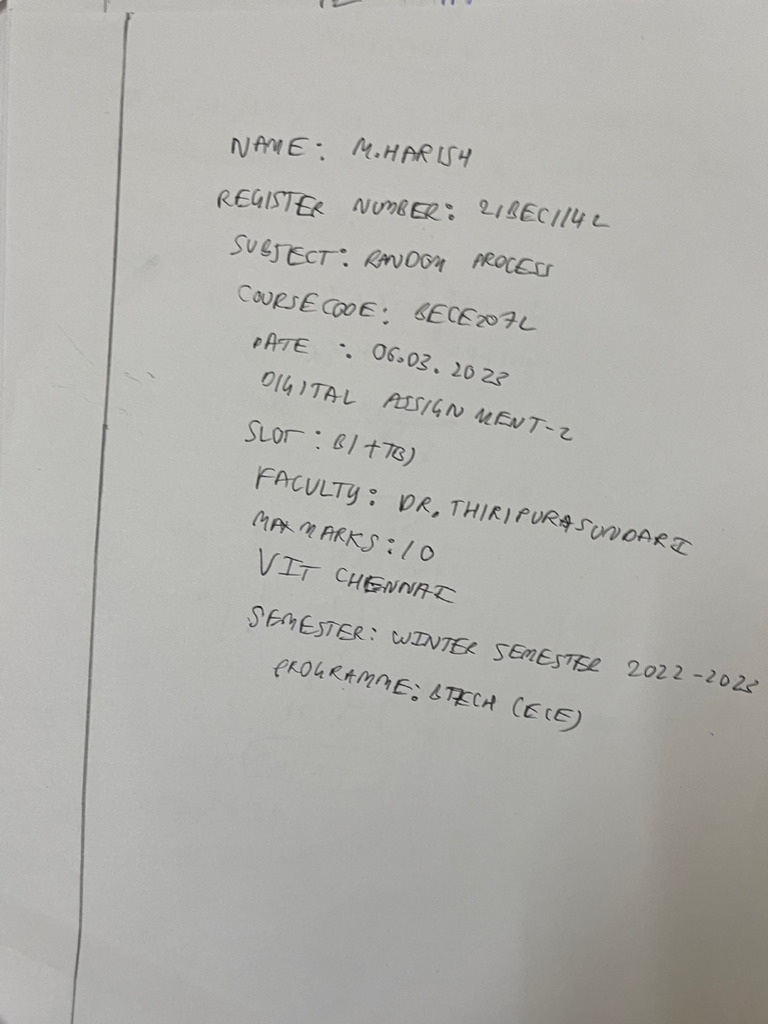 NAME: M.HARISH
REGISTER NUMBER: 21BEC1142
SUBJECT: RANDOM PROCESS
COURSE CODE: BECE207L
DATE : 06.03.2023
DIGITAL ASSIGNMENT-2
SLOT : B1+TB1
FACULTY: DR. THIRIPURASUNDARI
MAX MARKS: 10
VIT CHENNAI
SEMESTER: WINTER SEMESTER 2022-2023
PROGRAMME: BTECH (ECE)